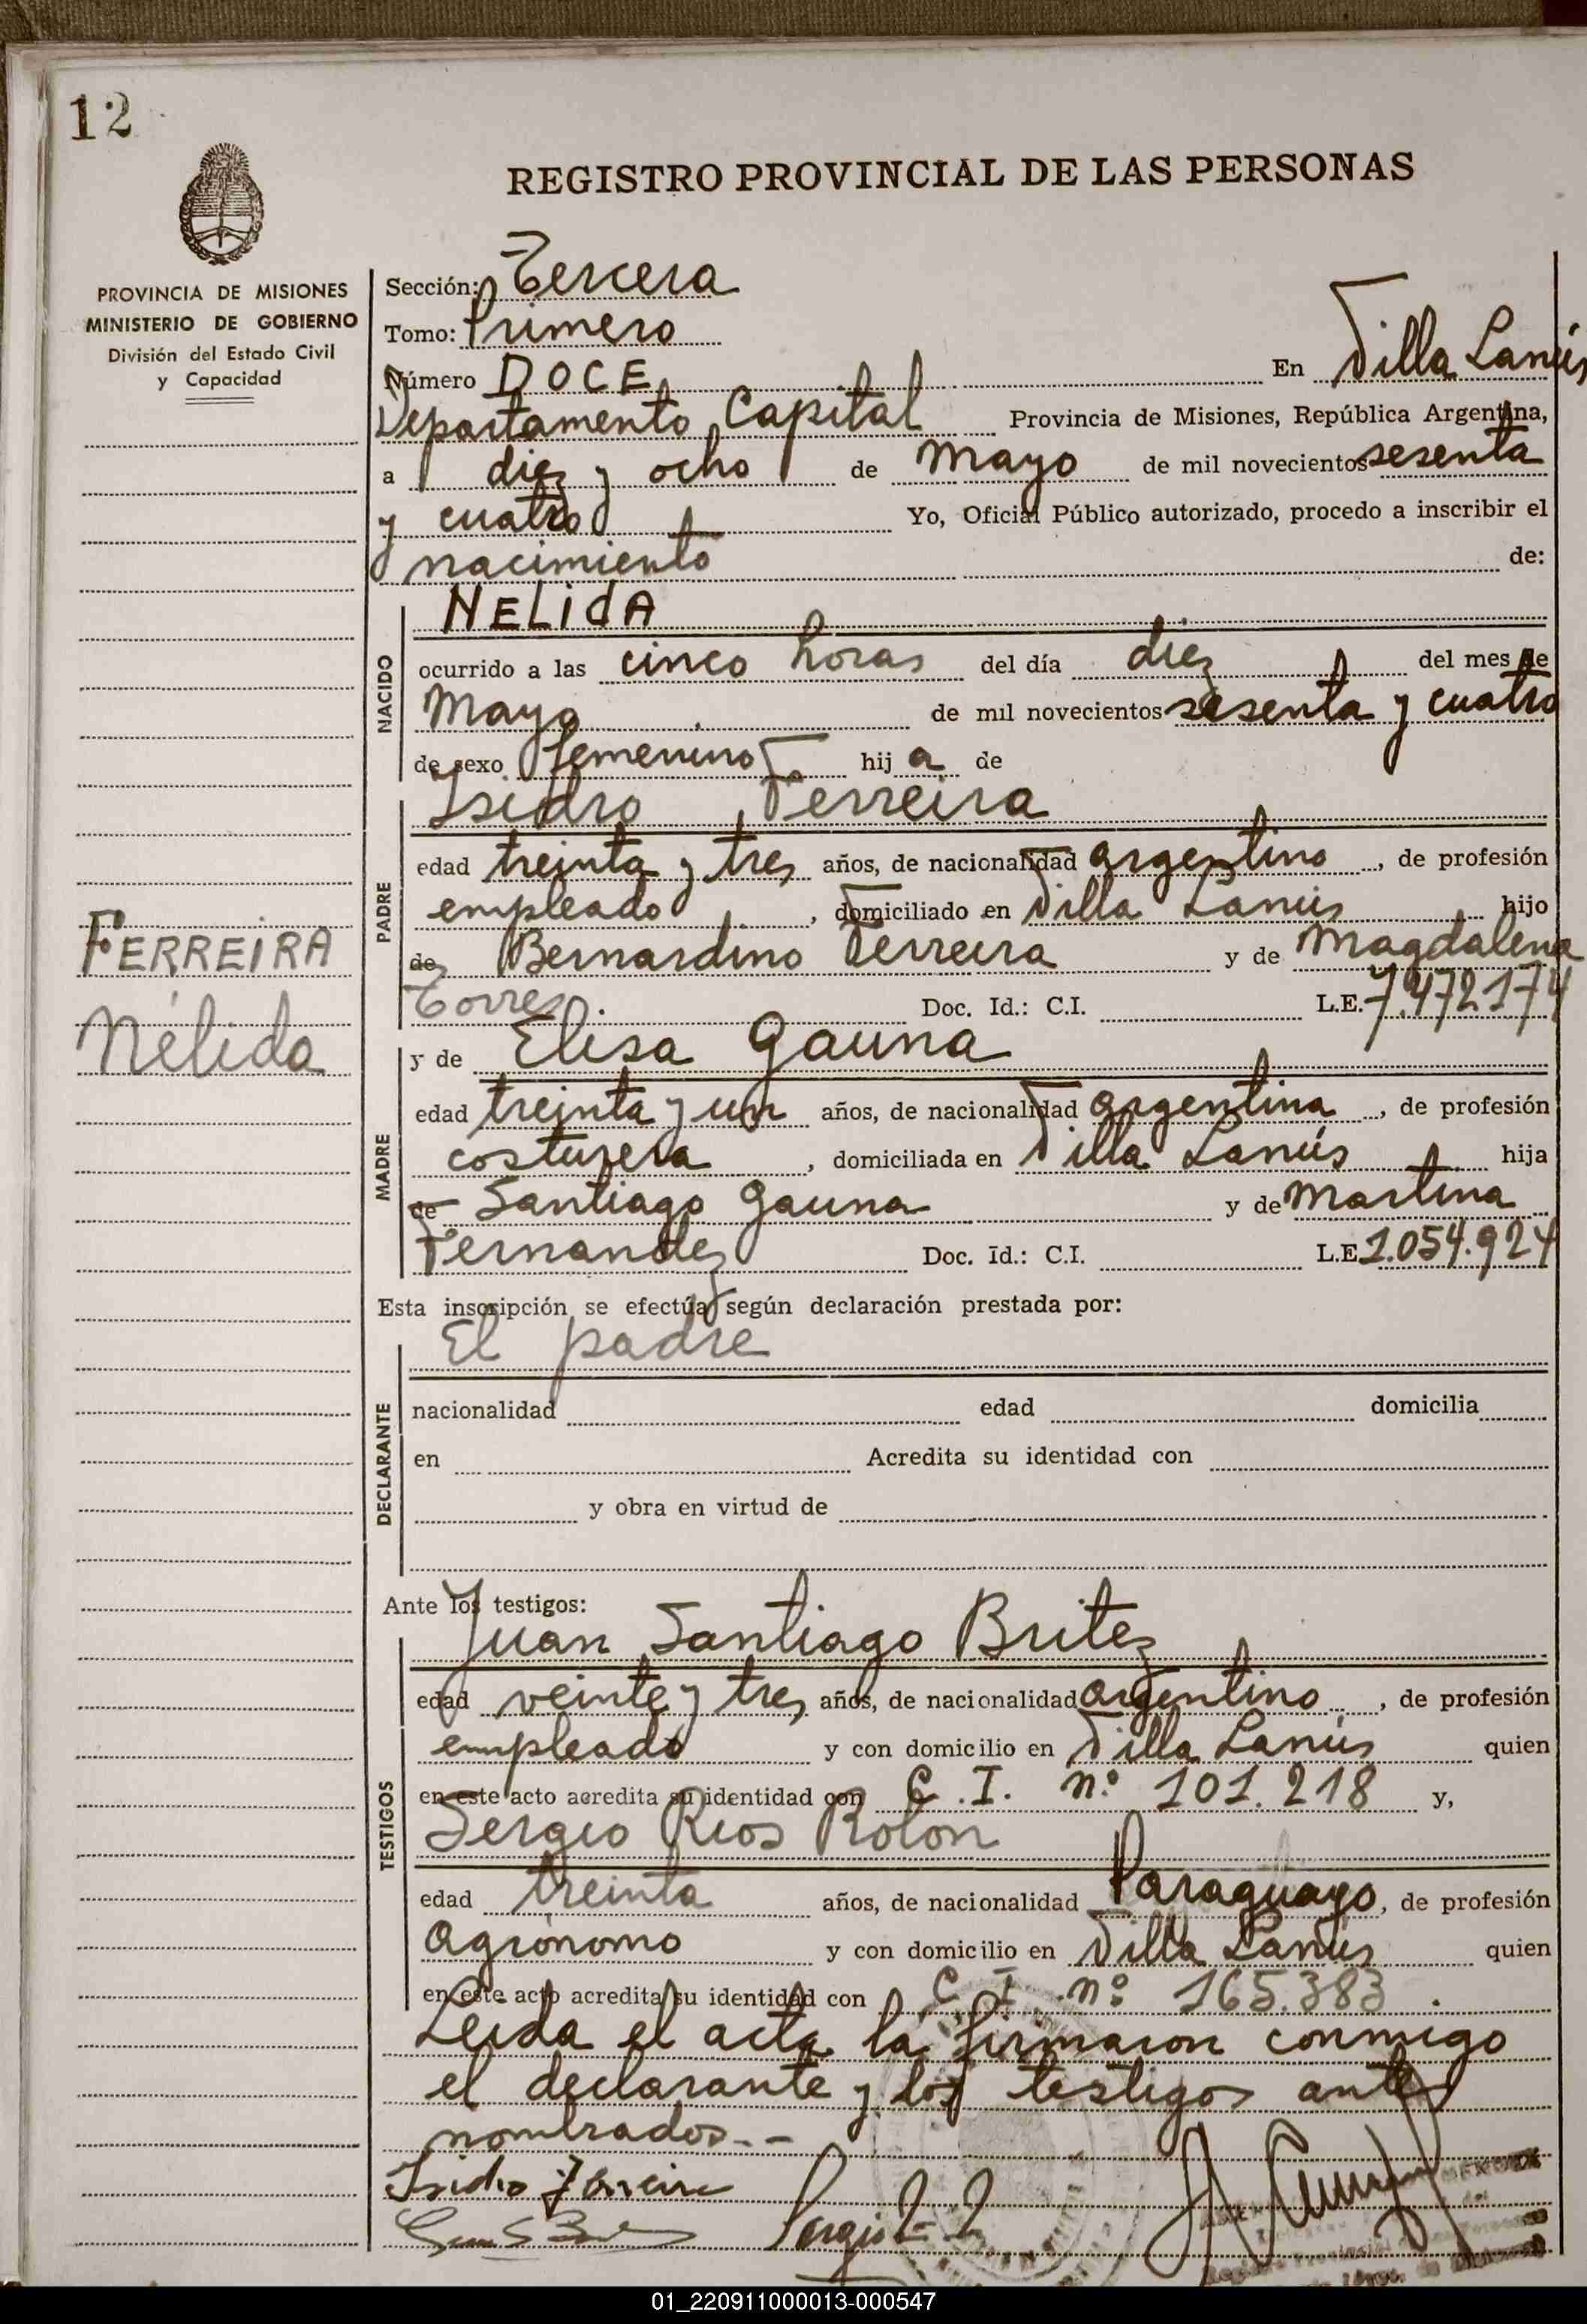 12
REGISTRO PROVINCIAL DE LAS PERSONAS
PROVINCIA DE MISIONES
MINISTERIO DE GOBIERNO
División del Estado Civil
y Capacidad
FERREIRA
Nélida
Sección: Tercera
Tomo: Primero
Número DOCE En Villa Lanús
Departamento Capital Provincia de Misiones, República Argentina,
a diez y ocho de Mayo de mil novecientos sesenta
y cuatro Yo, Oficial Público autorizado, procedo a inscribir el
nacimiento de:
NACIDO
NELIdA
ocurrido a las cinco horas del día diez del mes de
Mayo de mil novecientos sesenta y cuatro
de sexo femenino hija de
PADRE
Isidro Ferreira
edad treinta y tres años, de nacionalidad argentino, de profesión
empleado, domiciliado en Villa Lanús hijo
de Bernardino Ferreira y de Magdalena
Torres. Doc. Id.: C.I. L.E. 7.472174
MADRE
y de Elisa Gauna
edad treinta y un años, de nacionalidad argentina, de profesión
costurera, domiciliada en Villa Lanús hija
de Santiago Gauna y de Martina
Fernandez Doc. Id.: C.I. L.E 1.054.924
Esta inscripción se efectúa según declaración prestada por:
DECLARANTE
El padre
nacionalidad edad domicilia
en Acredita su identidad con
y obra en virtud de
Ante los testigos:
TESTIGOS
Juan Santiago Britez
edad veinte y tres años, de nacionalidad argentino, de profesión
empleado y con domicilio en Villa Lanús quien
en este acto acredita su identidad con C.I. nº 101.218 y,
Sergio Rios Rolon
edad treinta años, de nacionalidad Paraguayo, de profesión
Agrónomo y con domicilio en Villa Lanús quien
en este acto acredita su identidad con C I nº 165.383.
Leida el acta la firmaron conmigo
el declarante y los testigos antes
nombrados.--
Isidro Ferreira
Sergio
01_220911000013-000547